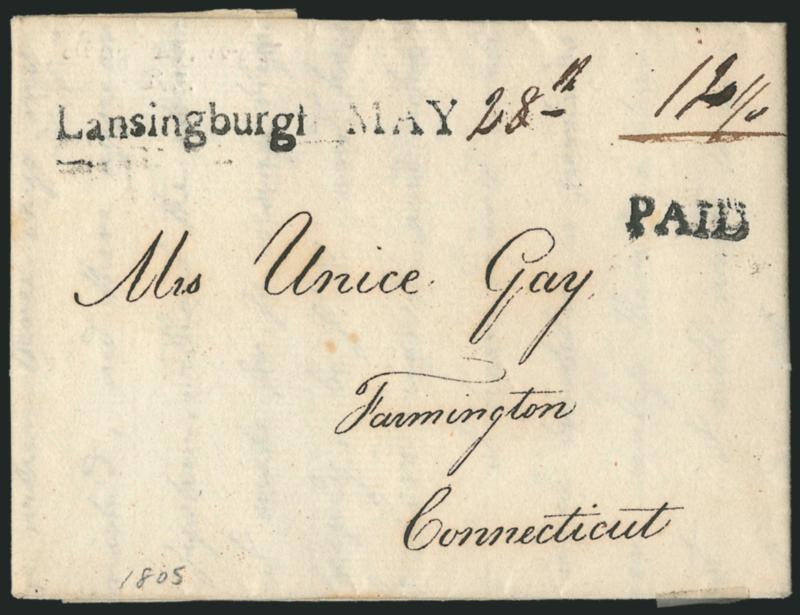 Lansingburgh MAY 28th 12 1/2
PAID
Mrs Unice Gay
Farmington
Connecticut
1805